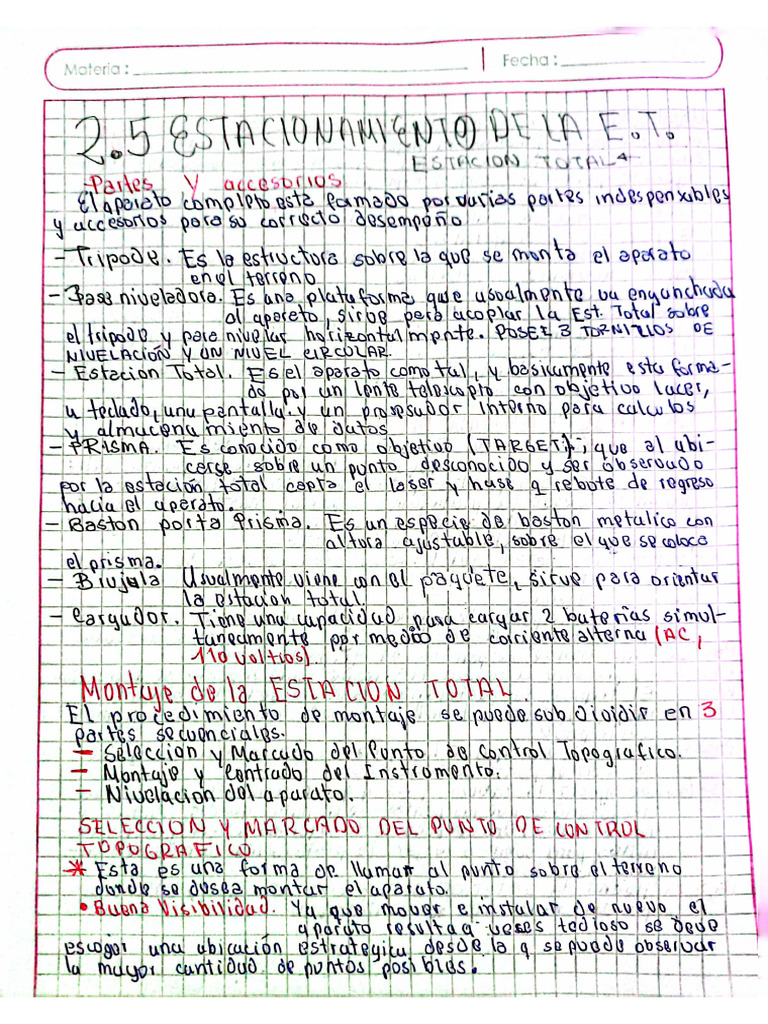 Materia:
Fecha:
2.5 ESTACIONAMIENTO DE LA E.T.
ESTACION TOTAL
Partes Y accesorios
El aparato completo esta formado por varias partes indespensables
y accesorios para so correcto desempeño
- Tripode. Es la estructura sobre la que se monta el aparato
en el terreno
- Base niveladora. Es una plataforma que usualmente va enganchada
al aparato, sirve para acoplar la Est. Total sobre
el tripode y para nivelar horizontalmente. POSEE 3 TORNILLOS DE
NIVELACIÓN Y UN NIVEL CIRCULAR.
- Estacion Total. Es el aparato como tal, y basicamente esta forma-
do por un lente telescopio con objetivo lacer,
u teclado, una pantalla y un prosesador interno para calculos
y almacenamiento de datos
- PRISMA. Es conocido como objetivo (TARGET), que al ubi-
carse sobre un punto desconocido y ser observado
por la estación total capta el laser y hase q rebote de regreso
hacia el aparato.
- Baston porta Prisma. Es un especie de baston metalico con
altura ajustable, sobre el que se coloca
el prisma.
- Brujula Usualmente viene con el paquete, sirve para orientar
la estacion total
- Cargador. Tiene una capacidad para cargar 2 baterias simul-
taneamente por medio de corriente alterna (AC,
110 voltios)
Montaje de la ESTACION TOTAL
El procedimiento de montaje se puede sub Dividir en 3
partes secuenciales.
- Seleccion y Marcado del Punto de Control Topografico.
- Montaje y Centrado del Instromento.
- Nivelacion del aparato.
SELECCION Y MARCADO DEL PUNTO DE CONTROL
TOPOGRAFICO
* Esta es una forma de llamar al punto sobre el terreno
donde se desea montar el aparato.
• Buena Visibilidad. Ya que mover e instalar de nuevo el
aparato resulta a veses tedioso se debe
escoger una ubicación estrategica desde la q se puede observar
la mayor cantidad de puntos posibles.